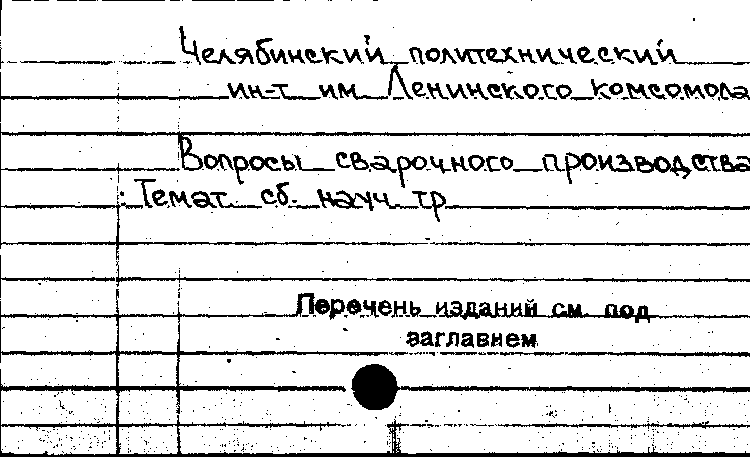 Челябинский политехнический
ин-т им. Ленинского комсомола
Вопросы сварочного производства
: Темат. сб. науч. тр.
Перечень изданий см. под
заглавием